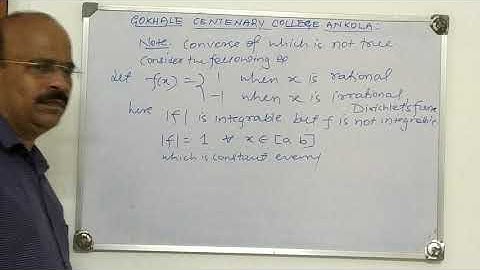 GOKHALE CENTENARY COLLEGE ANKOLA:
Note: Converse of which is not true
Consider the following
Let f(x) = { 1 when x is rational
-1 when x is irrational,
Dirichlet's func
here |f| is integrable but f is not integrable
|f| = 1 ∀ x ∈ [a b]
which is constant every